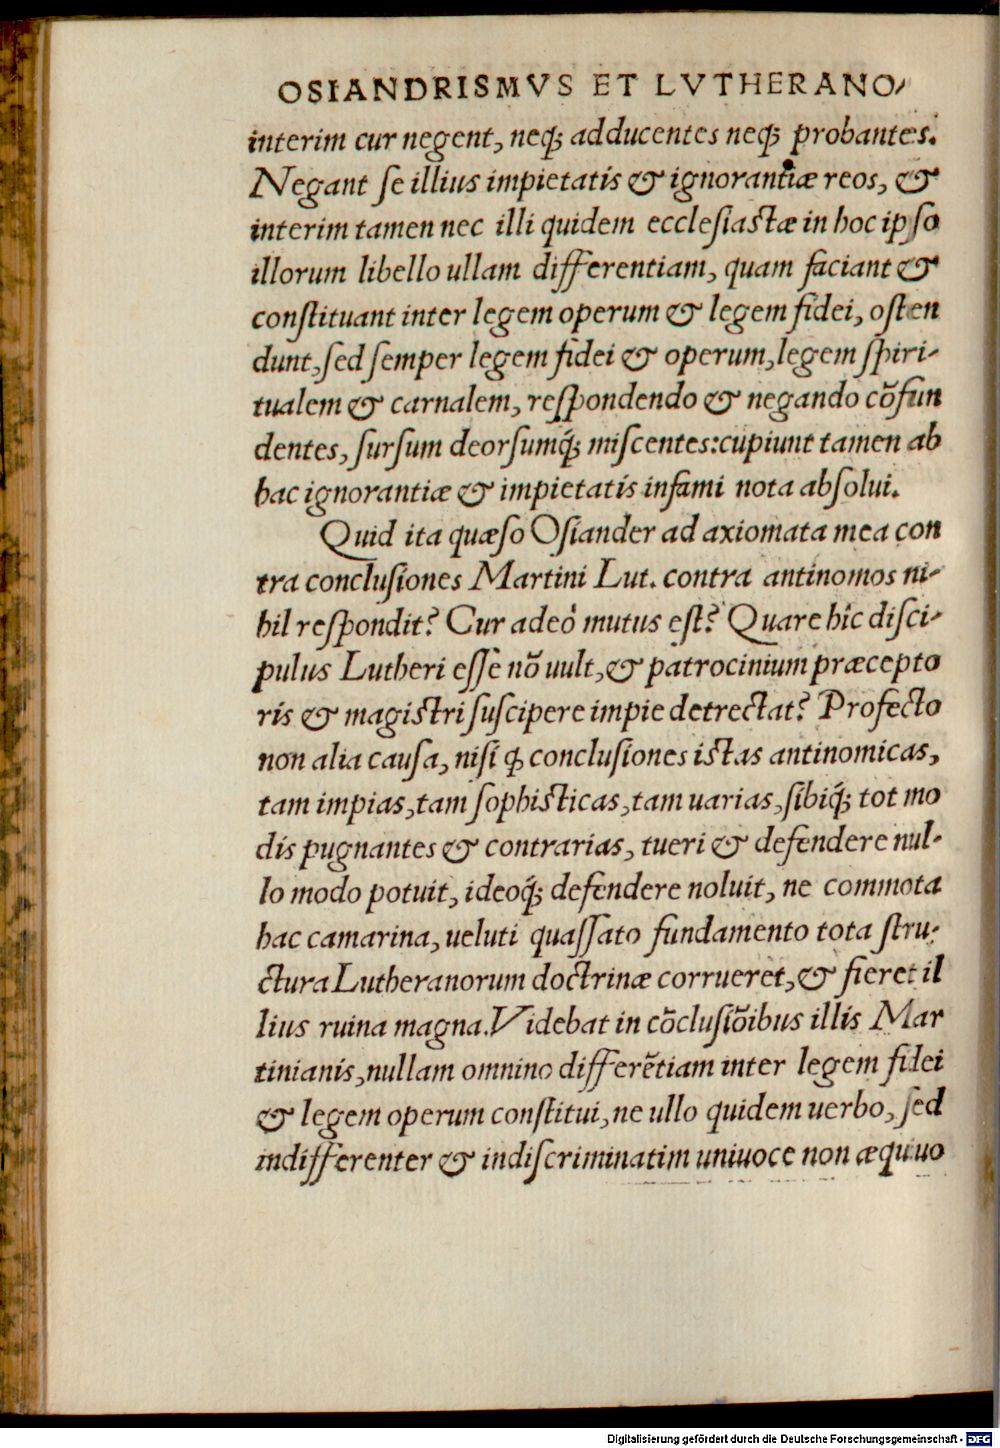 OSIANDRISMVS ET LVTHERANO⸗
interim cur negent, neqꝫ adducentes neqꝫ probantes.
Negant ſe illius impietatis & ignorantiæ reos, &
interim tamen nec illi quidem eccleſiaſtæ in hoc ipſo
illorum libello ullam differentiam, quam faciant &
conſtituant inter legem operum & legem fidei, oſten
dunt, ſed ſemper legem fidei & operum, legem ſpiri⸗
tualem & carnalem, reſpondendo & negando cõfun
dentes, ſurſum deorſumq́ꝫ miſcentes: cupiunt tamen ab
hac ignorantiæ & impietatis infami nota abſolui.
Quid ita quæſo Oſiander ad axiomata mea con
tra concluſiones Martini Lut. contra antinomos ni⸗
hil reſpondit? Cur adeò mutus eſt? Quare hîc diſci⸗
pulus Lutheri eſſe nõ uult, & patrocinium præcepto
ris & magiſtri ſuſcipere impie detrectat? Profecto
non alia cauſa, niſi ꝙ concluſiones iſtas antinomicas,
tam impias, tam ſophiſticas, tam uarias, ſibiq́ꝫ tot mo
dis pugnantes & contrarias, tueri & defendere nul⸗
lo modo potuit, ideoq́ꝫ defendere noluit, ne commota
hac camarina, ueluti quaſſato fundamento tota ſtru⸗
ctura Lutheranorum doctrinæ corrueret, & fieret il
lius ruina magna. Videbat in cõcluſiõibus illis Mar
tinianis, nullam omnino differẽtiam inter legem fidei
& legem operum conſtitui, ne ullo quidem uerbo, ſed
indifferenter & indiſcriminatim uniuoce non æquiuo
Digitalisierung gefördert durch die Deutsche Forschungsgemeinschaft - DFG